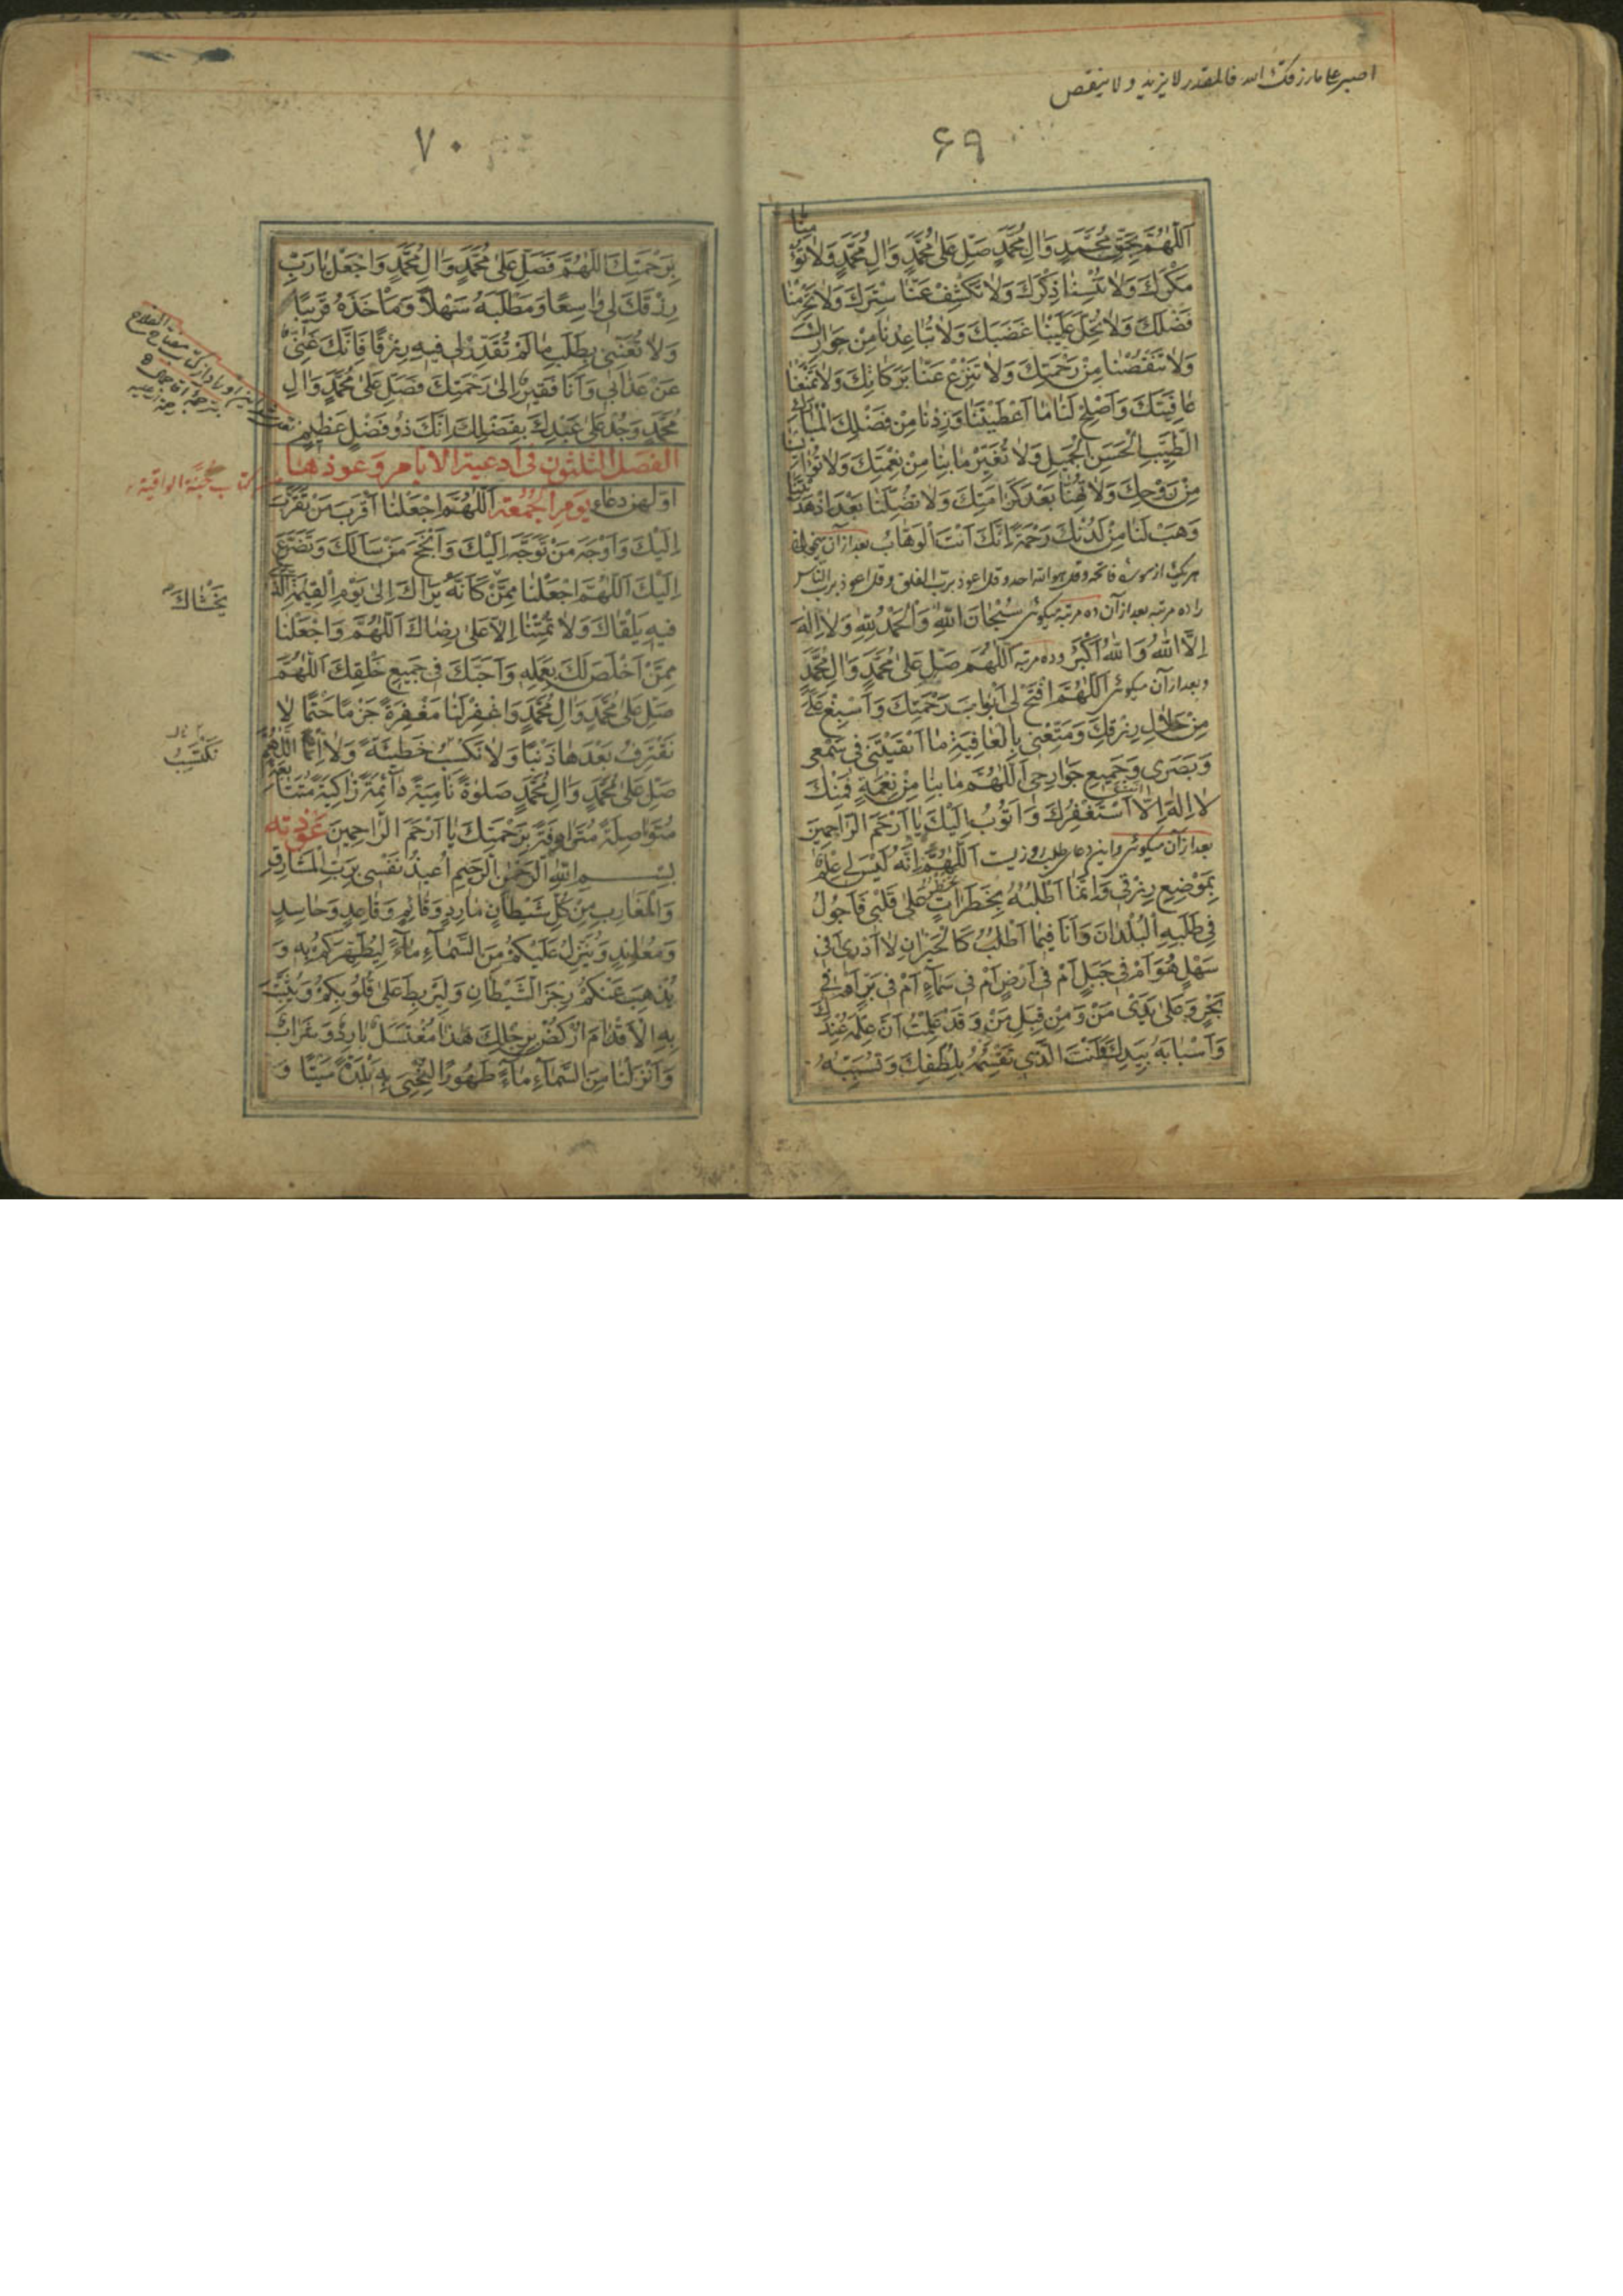 اصبر علی ما رزقک الله فالمقدر لا یزید ولا ینقص
۶۹
اَللّٰهُمَّ بِحَقِّ مُحَمَّدٍ وَاٰلِ مُحَمَّدٍ صَلِّ عَلٰی مُحَمَّدٍ وَاٰلِ مُحَمَّدٍ وَلاٰ تُؤْمِنّٰا
مَکْرَكَ وَلاٰ تُنْسِنٰا ذِکْرَكَ وَلاٰ تَکْشِفْ عَنّٰا سِتْرَكَ وَلاٰ تَحْرِمْنٰا
فَضْلَكَ وَلاٰ تُحِلَّ عَلَیْنٰا غَضَبَكَ وَلاٰ تُبٰاعِدْنٰا مِنْ جِوٰارِكَ
وَلاٰ تَنْقُصْنٰا مِنْ رَحْمَتِكَ وَلاٰ تَنْزِعْ عَنّٰا بَرَکٰاتِكَ وَلاٰ تَمْنَعْنٰا
عٰافِیَتَكَ وَاَصْلِحْ لَنٰا مٰا اَعْطَیْتَنٰا وَزِدْنٰا مِنْ فَضْلِكَ الْمُبٰارَكِ
الطَّیِّبِ الْحَسَنِ الْجَمِیلِ وَلاٰ تُغَیِّرْ مٰا بِنٰا مِنْ نِعْمَتِكَ وَلاٰ تُؤْیِسْنٰا
مِنْ رَوْحِكَ وَلاٰ تُهِنّٰا بَعْدَ کَرٰامَتِكَ وَلاٰ تُضِلَّنٰا بَعْدَ اِذْ هَدَیْتَنٰا
وَهَبْ لَنٰا مِنْ لَدُنْكَ رَحْمَةً اِنَّكَ اَنْتَ الْوَهّٰابُ بعد از آن میخوانی
هر یک از سوره فاتحه و قل هو الله احد و قل اعوذ برب الفلق و قل اعوذ برب الناس
را ده مرتبه بعد از آن ده مرتبه میکوئی سُبْحٰانَ اللّٰهِ وَالْحَمْدُ لِلّٰهِ وَلاٰ اِلٰهَ
اِلَّا اللّٰهُ وَاللّٰهُ اَکْبَرُ و ده مرتبه اَللّٰهُمَّ صَلِّ عَلٰی مُحَمَّدٍ وَاٰلِ مُحَمَّدٍ
و بعد از آن میکوئی اَللّٰهُمَّ افْتَحْ لِی اَبْوٰابَ رَحْمَتِكَ وَاَسْبِغْ عَلَیَّ
مِنْ حَلاٰلِ رِزْقِكَ وَمَتِّعْنِی بِالْعٰافِیَةِ مٰا اَبْقَیْتَنِی فِی سَمْعِی
وَبَصَرِی وَجَمِیعِ جَوٰارِحِی اَللّٰهُمَّ مٰا بِنٰا مِنْ نِعْمَةٍ فَمِنْكَ
لاٰ اِلٰهَ اِلّٰا اَنْتَ اَسْتَغْفِرُكَ وَاَتُوبُ اِلَیْكَ یٰا اَرْحَمَ الرّٰاحِمِینَ
بعد از آن میکوئی و این دعای طلب روزیست اَللّٰهُمَّ اِنَّهُ لَیْسَ لِی عِلْمٌ
بِمَوْضِعِ رِزْقِی وَاِنَّمٰا اَطْلُبُهُ بِخَطَرٰاتٍ تَخْطُرُ عَلٰی قَلْبِی فَاَجُولُ
فِی طَلَبِهِ الْبُلْدٰانَ وَاَنَا فِیمٰا اَطْلُبُ کَالْحَیْرٰانِ لاٰ اَدْرِی اَفِی
سَهْلٍ هُوَ اَمْ فِی جَبَلٍ اَمْ فِی اَرْضٍ اَمْ فِی سَمٰاءٍ اَمْ فِی بَرٍّ اَمْ فِی
بَحْرٍ وَعَلٰی یَدَیْ مَنْ وَمِنْ قِبَلِ مَنْ وَقَدْ عَلِمْتُ اَنَّ عِلْمَهُ عِنْدَكَ
وَاَسْبٰابَهُ بِیَدِكَ وَاَنْتَ الَّذِی تَقْسِمُهُ بِلُطْفِكَ وَتُسَبِّبُهُ
۷۰
بِرَحْمَتِكَ اَللّٰهُمَّ فَصَلِّ عَلٰی مُحَمَّدٍ وَاٰلِ مُحَمَّدٍ وَاجْعَلْ یٰا رَبِّ
رِزْقَكَ لِی وٰاسِعًا وَمَطْلَبَهُ سَهْلاً وَمَأْخَذَهُ قَرِیبًا
وَلاٰ تُعَنِّنِی بِطَلَبِ مٰا لَمْ تُقَدِّرْ لِی فِیهِ رِزْقًا فَاِنَّكَ غَنِیٌّ
عَنْ عَذٰابِی وَاَنَا فَقِیرٌ اِلٰی رَحْمَتِكَ فَصَلِّ عَلٰی مُحَمَّدٍ وَاٰلِ
مُحَمَّدٍ وَجُدْ عَلٰی عَبْدِكَ بِفَضْلِكَ اِنَّكَ ذُو فَضْلٍ عَظِیمٍ
الفصل الثلثون فی ادعیة الایام و عوذها
کتاب جُنَّة الواقیة
اولهن دعاء یَوْمِ الْجُمُعَةِ اَللّٰهُمَّ اجْعَلْنٰا اَقْرَبَ مَنْ تَقَرَّبَ
اِلَیْكَ وَاَوْجَهَ مَنْ تَوَجَّهَ اِلَیْكَ وَاَنْجَحَ مَنْ سَأَلَكَ وَتَضَرَّعَ
اِلَیْكَ اَللّٰهُمَّ اجْعَلْنٰا مِمَّنْ کَاَنَّهُ یَرٰاكَ اِلٰی یَوْمِ الْقِیٰمَةِ الَّذِی
یَخْشٰاكَ
فِیهِ یَلْقٰاكَ وَلاٰ تُمِتْنٰا اِلاّٰ عَلٰی رِضٰاكَ اَللّٰهُمَّ وَاجْعَلْنٰا
مِمَّنْ اَخْلَصَ لَكَ بِعَمَلِهِ وَاَحَبَّكَ فِی جَمِیعِ خَلْقِكَ اَللّٰهُمَّ
صَلِّ عَلٰی مُحَمَّدٍ وَاٰلِ مُحَمَّدٍ وَاغْفِرْ لَنٰا مَغْفِرَةً جَزْمًا حَتْمًا لاٰ
نَقْتَرِفُ بَعْدَهٰا ذَنْبًا وَلاٰ نَکْسِبُ خَطِیئَةً وَلاٰ اِثْمًا اَللّٰهُمَّ
نَکْتَسِبُ
صَلِّ عَلٰی مُحَمَّدٍ وَاٰلِ مُحَمَّدٍ صَلٰوةً نٰامِیَةً دٰائِمَةً زٰاکِیَةً مُتَتٰابِعَةً
مُتَوٰاصِلَةً مُتَرٰادِفَةً بِرَحْمَتِكَ یٰا اَرْحَمَ الرّٰاحِمِینَ عُوذَته
بِسْمِ اللّٰهِ الرَّحْمٰنِ الرَّحِیمِ اُعِیذُ نَفْسِی بِرَبِّ الْمَشٰارِقِ
وَالْمَغٰارِبِ مِنْ کُلِّ شَیْطٰانٍ مٰارِدٍ وَقٰائِمٍ وَقٰاعِدٍ وَحٰاسِدٍ
وَمُعٰانِدٍ وَیُنَزِّلُ عَلَیْکُمْ مِنَ السَّمٰاءِ مٰاءً لِیُطَهِّرَکُمْ بِهِ وَ
یُذْهِبَ عَنْکُمْ رِجْزَ الشَّیْطٰانِ وَلِیَرْبِطَ عَلٰی قُلُوبِکُمْ وَیُثَبِّتَ
بِهِ الْاَقْدٰامَ اُرْکُضْ بِرِجْلِكَ هٰذٰا مُغْتَسَلٌ بٰارِدٌ وَشَرٰابٌ
وَاَنْزَلْنٰا مِنَ السَّمٰاءِ مٰاءً طَهُورًا لِنُحْیِیَ بِهِ بَلْدَةً مَیْتًا وَ